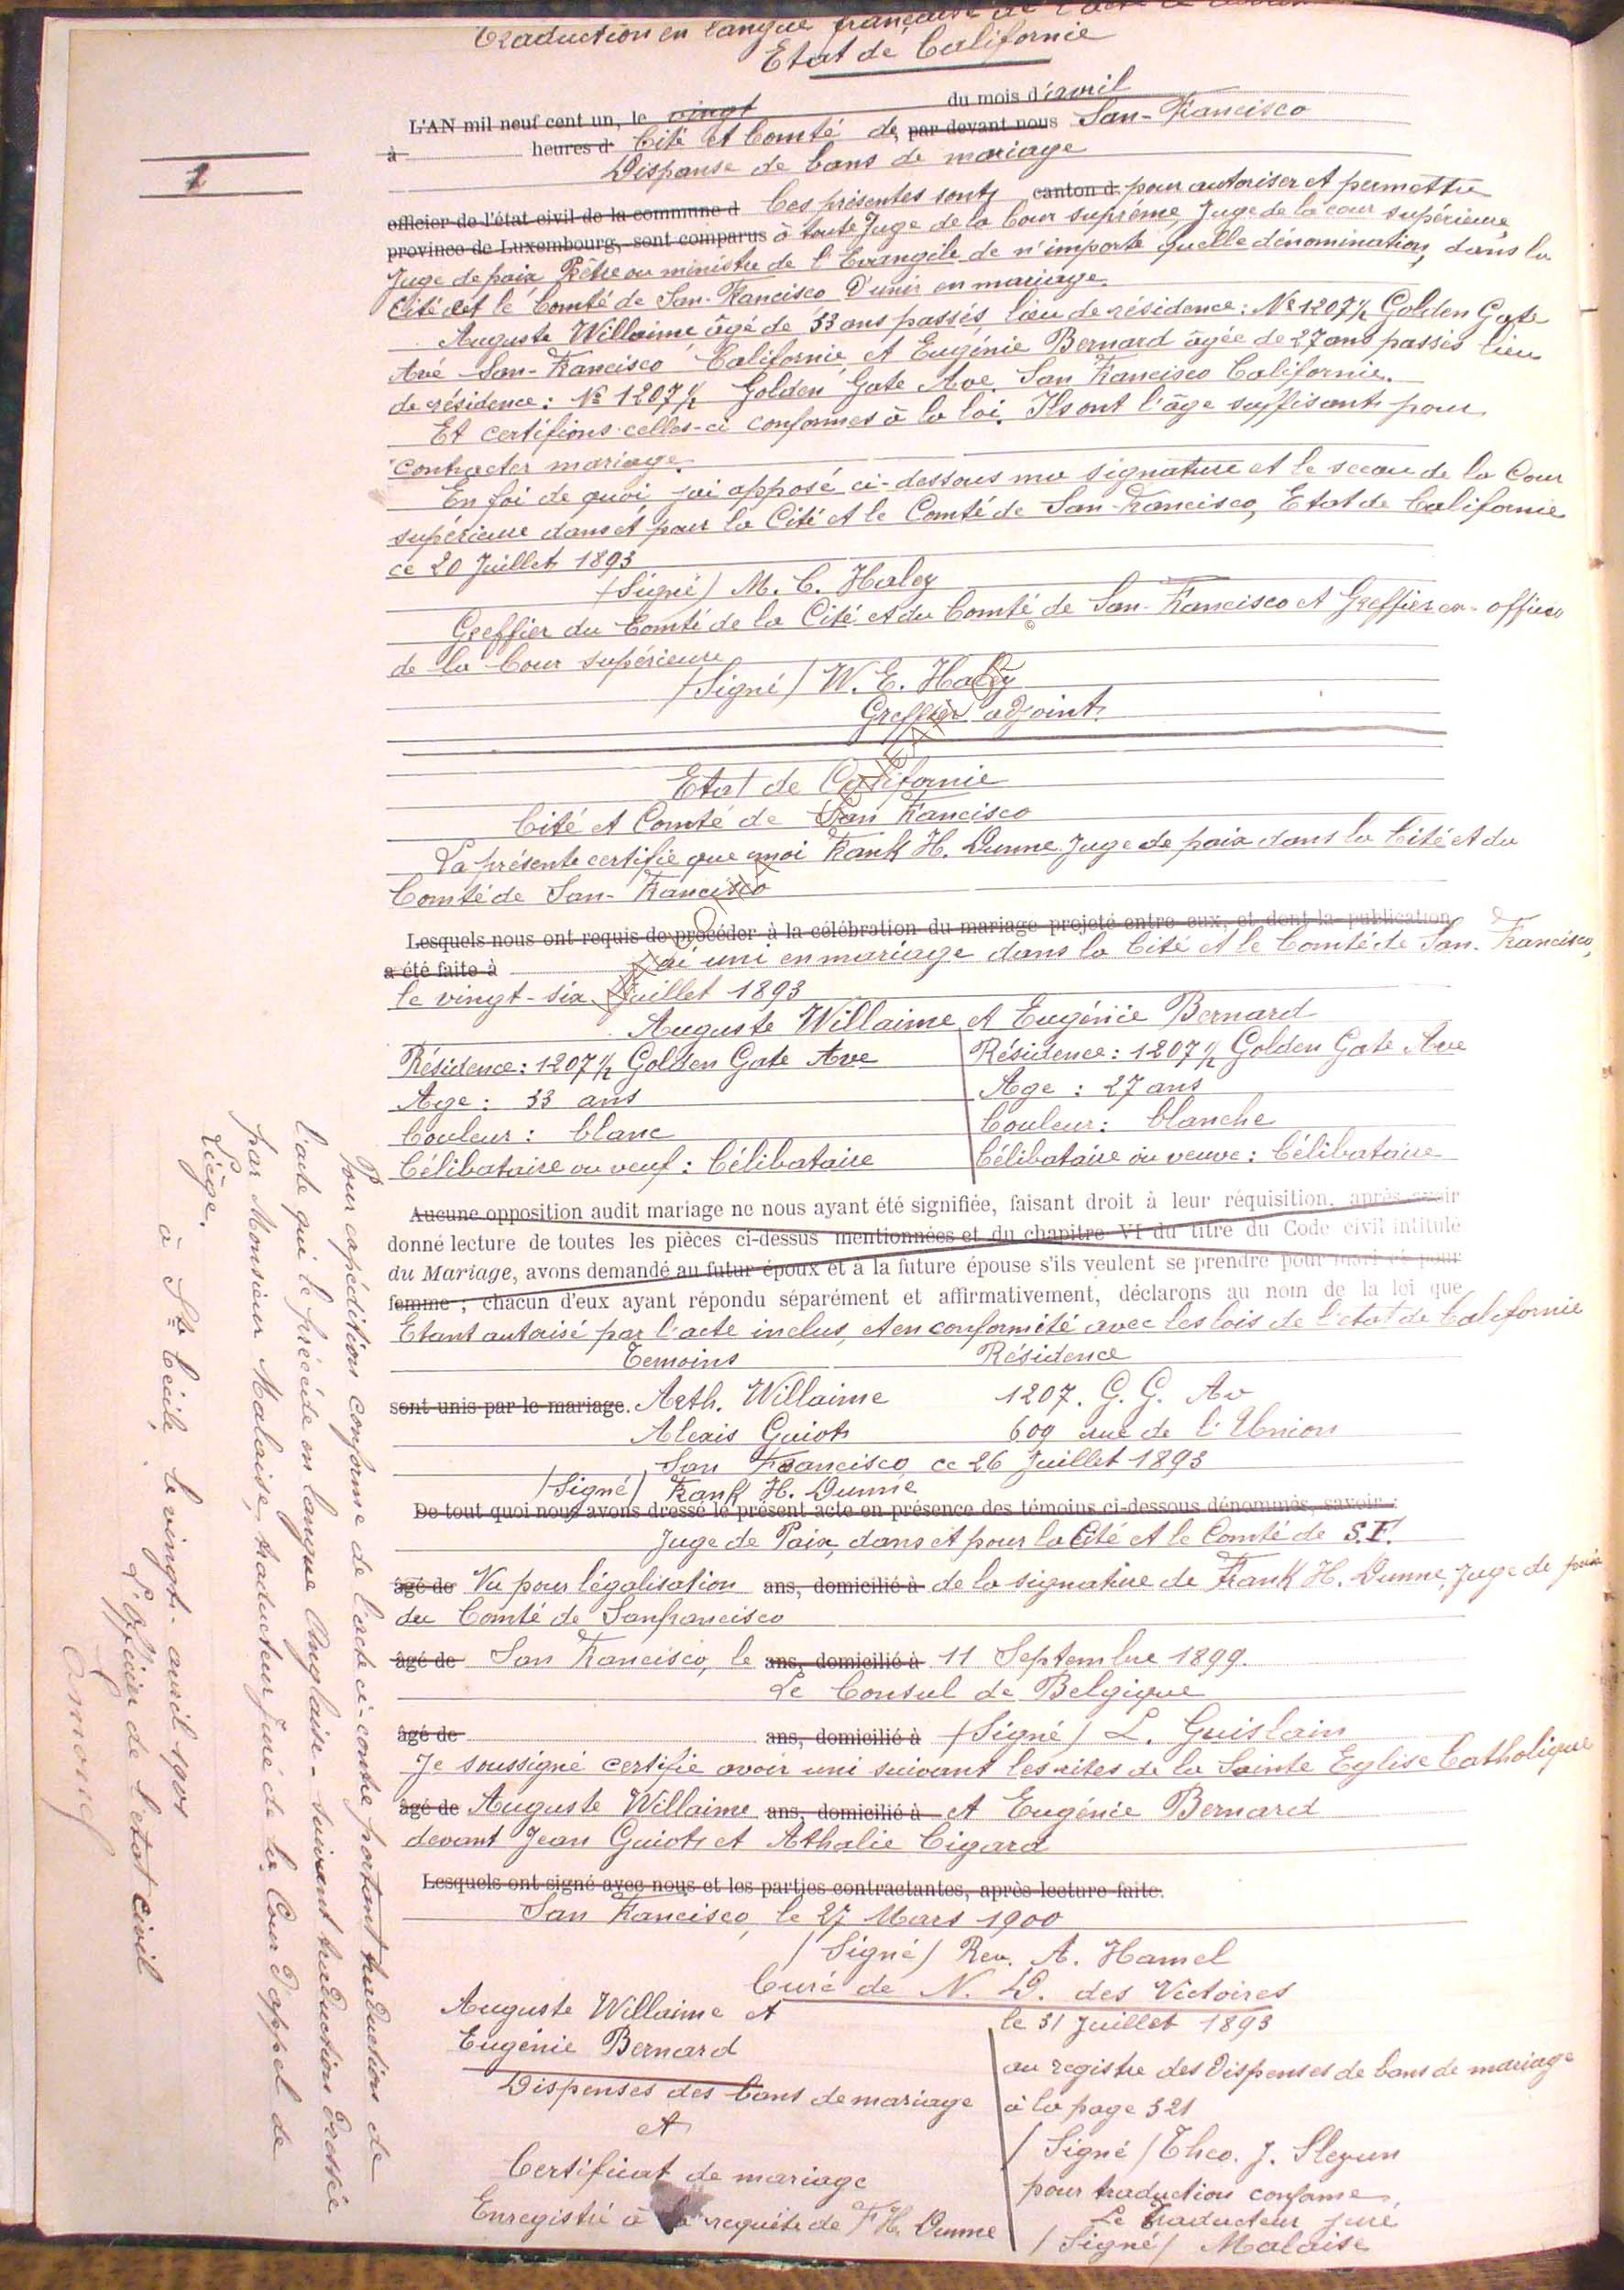 Traduction en langue française de l'acte
Etat de Californie
L'AN mil neuf cent un, le vingt du mois d'avril
à heures d Cité et Comté de par devant nous San-Francisco
Dispense de bans de mariage
officier de l'état civil de la commune d Ces présentes sont canton d pour autoriser et permettre
province de Luxembourg, sont comparus à toute Juge de la Cour suprême, Juge de la cour supérieure,
Juge de paix, Prêtre ou ministre de l'Evangile de n'importe quelle dénomination, dans la
Cité et le Comté de San-Francisco D'unir en mariage
Auguste Willaime âgé de 33 ans passés, lieu de résidence: No 1207 1/2 Golden Gate
Ave San-Francisco Californie et Eugénie Bernard âgée de 27 ans passés lieu
de résidence: No 1207 1/2 Golden Gate Ave San Francisco Californie.
Et certifions celles-ci conformes à la loi. Ils ont l'âge suffisant pour
contracter mariage.
En foi de quoi j'ai apposé ci-dessous ma signature et le sceau de la Cour
supérieure dans et pour la Cité et le Comté de San-Francisco, Etat de Californie
ce 20 Juillet 1893
/Signé/ M. C. Haley
Greffier du Comté de la Cité et du Comté de San-Francisco et Greffier ex-officio
de la Cour supérieure
/Signé/ W. E. Haley
Greffier adjoint.
Etat de Californie
Cité et Comté de San Francisco
La présente certifie que moi Frank H. Dunne Juge de paix dans la Cité et du
Comté de San-Francisco
Lesquels nous ont requis de procéder à la célébration du mariage projeté entre eux, et dont la publication
a été faite à j'ai uni en mariage dans la Cité et le Comté de San-Francisco,
le vingt-six Juillet 1893
Auguste Willaime et Eugénie Bernard
Résidence: 1207 1/2 Golden Gate Ave Résidence: 1207 1/2 Golden Gate Ave
Age: 33 ans Age: 27 ans
Couleur: blanc Couleur: blanche
Célibataire ou veuf: Célibataire Célibataire ou veuve: Célibataire
Aucune opposition audit mariage ne nous ayant été signifiée, faisant droit à leur réquisition, après avoir
donné lecture de toutes les pièces ci-dessus mentionnées et du chapitre VI du titre du Code civil intitulé
du Mariage, avons demandé au futur époux et à la future épouse s'ils veulent se prendre pour mari et pour
femme ; chacun d'eux ayant répondu séparément et affirmativement, déclarons au nom de la loi que
Etant autorisé par l'acte inclus, et en conformité avec les lois de l'état de Californie
Temoins Résidence
sont unis par le mariage. Arth. Willaime 1207. G. G. Av
Alexis Guiot 609 rue de l'Union
San Francisco ce 26 Juillet 1893
/Signé/ Frank H. Dunne
De tout quoi nous avons dressé le présent acte en présence des témoins ci-dessous dénommés, savoir :
Juge de Paix, dans et pour la Cité et le Comté de S.F.
âgé de Vu pour légalisation ans, domicilié à de la signature de Frank H. Dunne, Juge de paix
du Comté de Sanfrancisco
âgé de San Francisco, le ans, domicilié à 11 Septembre 1899.
Le Consul de Belgique
âgé de ans, domicilié à /Signé/ L. Guislain
Je soussigné certifie avoir uni suivant les rites de la Sainte Eglise Catholique
âgé de Auguste Willaime ans, domicilié à et Eugénie Bernard
devant Jean Guiot et Athalie Cigard
Lesquels ont signé avec nous et les parties contractantes, après lecture faite.
San Francisco, le 27 Mars 1900
/Signé/ Rev. A. Hamel
Curé de N. D. des Victoires
Auguste Willaime et
Eugénie Bernard
Dispenses des bans de mariage
et
Certificat de mariage
Enregistré à la requête de F H. Dunne
le 31 Juillet 1893
au registre des Dispenses de bans de mariage
à la page 321
/Signé/ Theo. J.
pour traduction conforme,
Le Traducteur juré
/Signé/ Malaise
1
Pour expédition conforme de l'acte ci-contre portant traduction de
l'acte qui le précède en langue Anglaise - suivant traduction dressée
par Monsieur Malaise, traducteur juré de la Cour d'appel de
Liège.
à Ste Cécile le vingt-avril 1901
L'officier de l'état civil